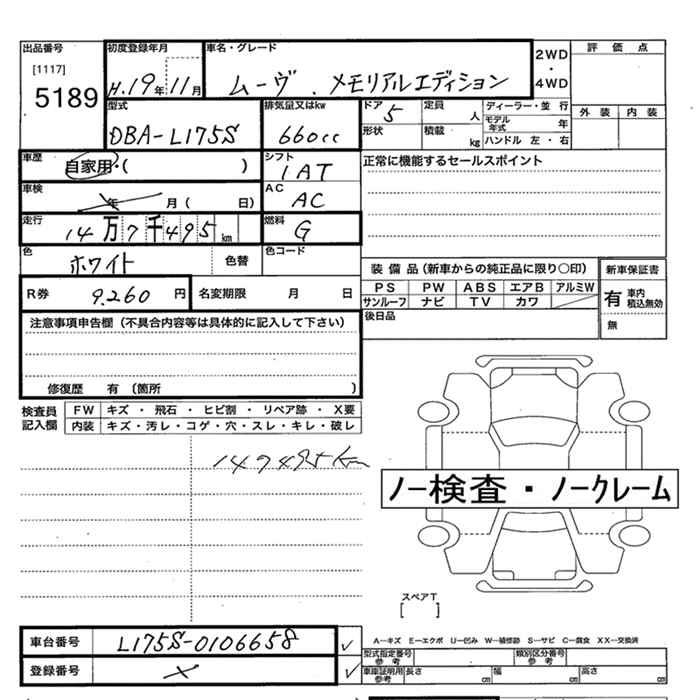 出品番号 初度登録年月 車名・グレード 2WD ・ 4WD 評 価 点
[1117] 5189 H.19年 11月 ムーヴ . メモリアルエディション
外 装 内 装
型式 排気量又はkw ドア 5 定員 人 ディーラー・並 行
DBA-L175S 660cc 形状 積載 kg モデル年式 年
ハンドル 左 ・ 右
車歴 自家用・( ) シフト 1AT 正常に機能するセールスポイント
車検 年 月 ( 日) AC AC
走行 14万7千495km 燃料 G
色 ホワイト 色替 色コード
装 備 品 (新車からの純正品に限り〇印) 新車保証書
R券 9.260 円 名変期限 月 日 PS PW ABS エアB アルミW 有 車内積込無効
サンルーフ ナビ TV カワ
注意事項申告欄 (不具合内容等は具体的に記入して下さい) 後日品 無
修復歴 有 (箇所 )
検査員記入欄 FW キズ ・ 飛石 ・ ヒビ割 ・ リペア跡 ・ X要
内装 キズ・汚レ・コゲ・穴・スレ・キレ・破レ
147495km
ノー検査・ノークレーム
スペアT
[ ]
車台番号 L175S-0106658 ✓
A―キズ E―エクボ U―凹み W―補修跡 S―サビ C―腐食 XX―交換済
型式指定番号 参考 類別区分番号 参考
登録番号 × ✓ 車庫証明用 参考 長さ cm 幅 cm 高さ cm